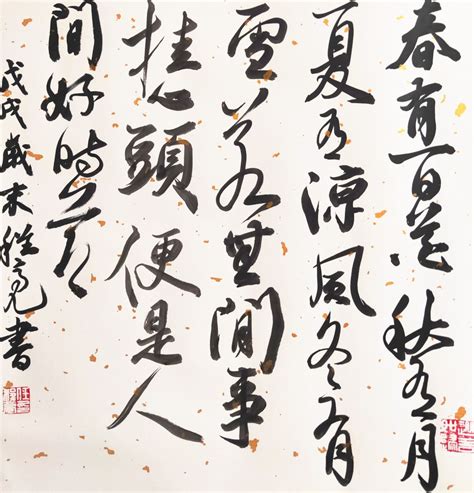 春有百花秋有月
夏有涼風冬有
雪若無閒事
挂心頭便是人
間好時節
戊戌歲末亮書